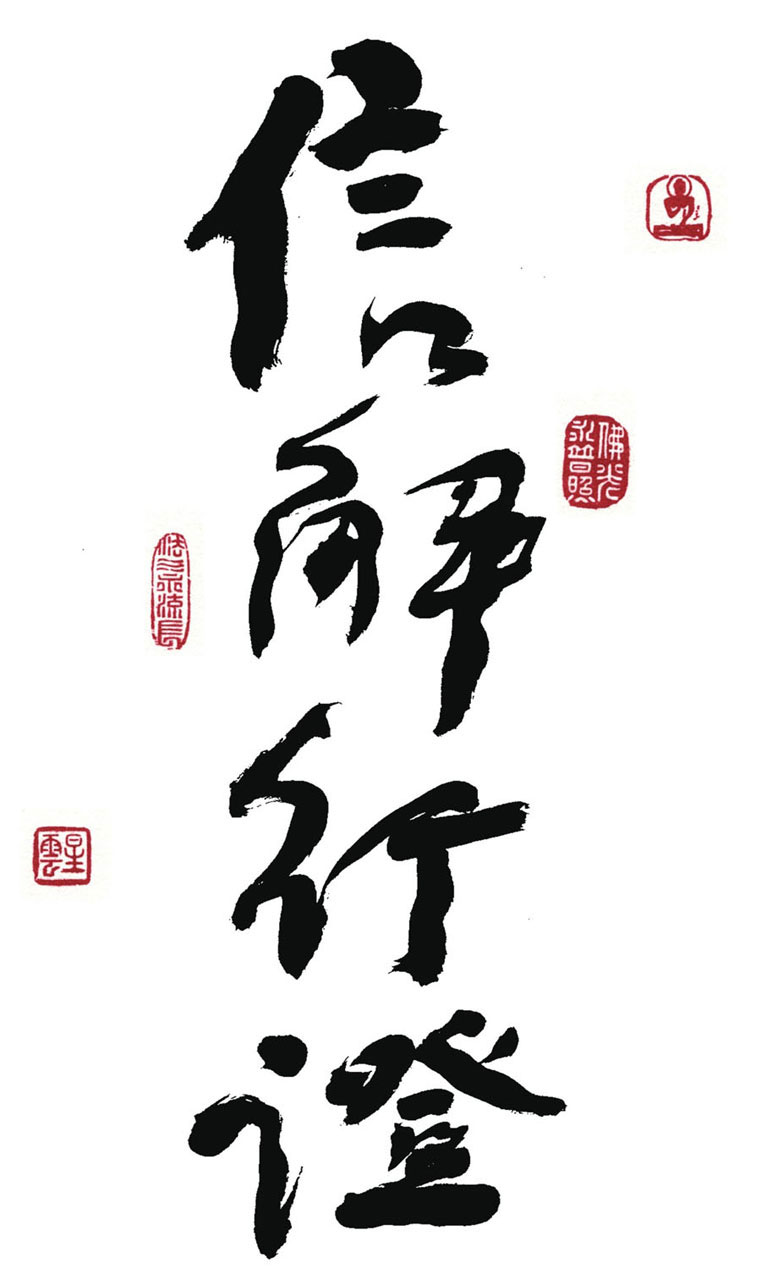 信解行證
佛光
普照
法水流長
星雲